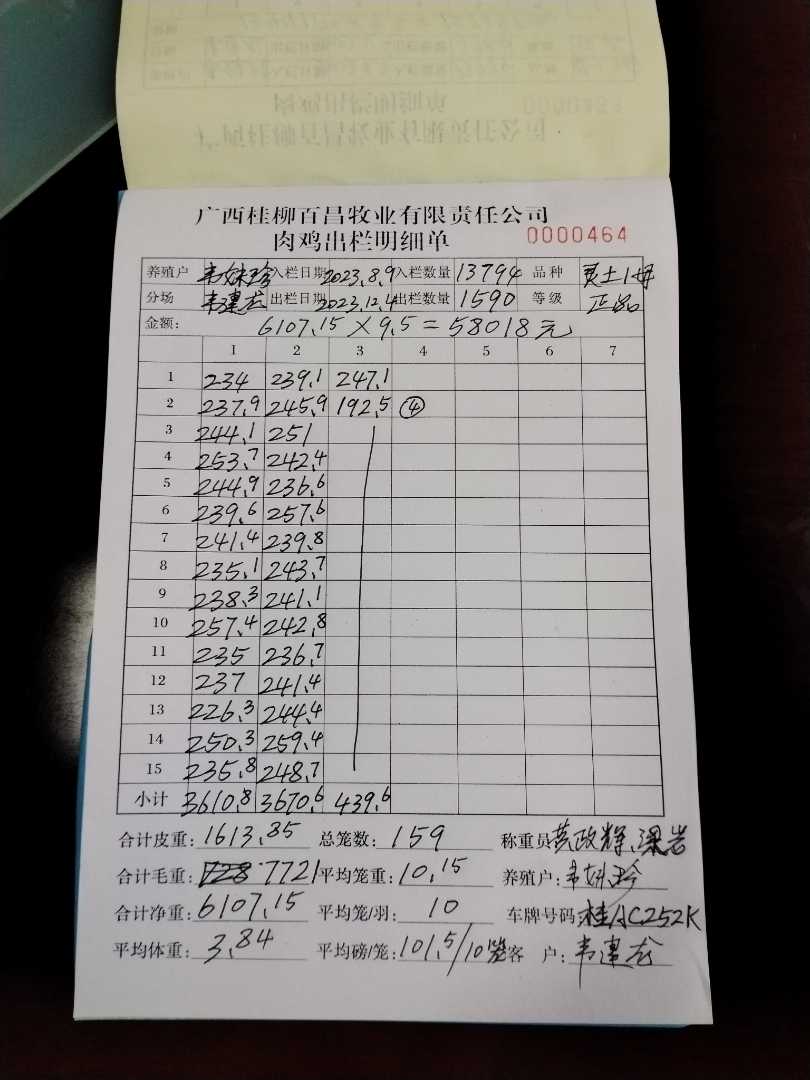 广西桂柳百昌牧业有限责任公司
肉鸡出栏明细单 0000464
养殖户 韦妹珍 入栏日期 2023.8.9 入栏数量 13794 品种 灵土1母
分场 韦建龙 出栏日期 2023.12.4 出栏数量 1590 等级 正品
金额: 6107.15×9.5=58018元
1 2 3 4 5 6 7
1 234 239.1 247.1
2 237.9 245.9 192.5 ④
3 244.1 251
4 253.7 242.4
5 244.9 236.6
6 239.6 257.6
7 241.4 239.8
8 235.1 243.7
9 238.3 241.1
10 257.4 242.8
11 235 236.7
12 237 241.4
13 226.3 244.4
14 250.3 259.4
15 235.8 248.7
小计 3610.8 3670.6 439.6
合计皮重: 1613.85 总笼数: 159 称重员 黄政辉、梁岩
合计毛重: 7721 平均笼重: 10.15 养殖户:
合计净重: 6107.15 平均笼/羽: 10 车牌号码: 桂AC252K
平均体重: 3.84 平均磅/笼: 101.5/10笼 客 户: 韦建龙